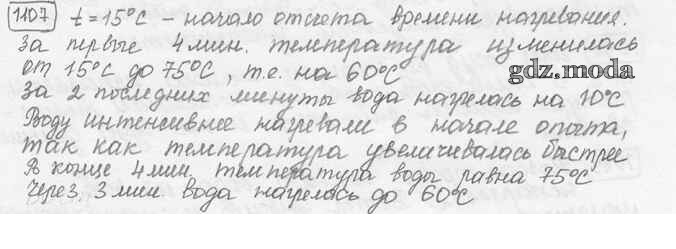 1107 t=15°C – начало отсчета времени нагревания.
За первые 4 мин. температура изменилась
от 15°C до 75°C, т.е. на 60°C
gdz.moda
За 2 последних минуты вода нагрелась на 10°C
Воду интенсивнее нагревали в начале опыта,
так как температура увеличивалась быстрее
В конце 4 мин. температура воды равна 75°C
Через 3 мин. вода нагрелась до 60°C